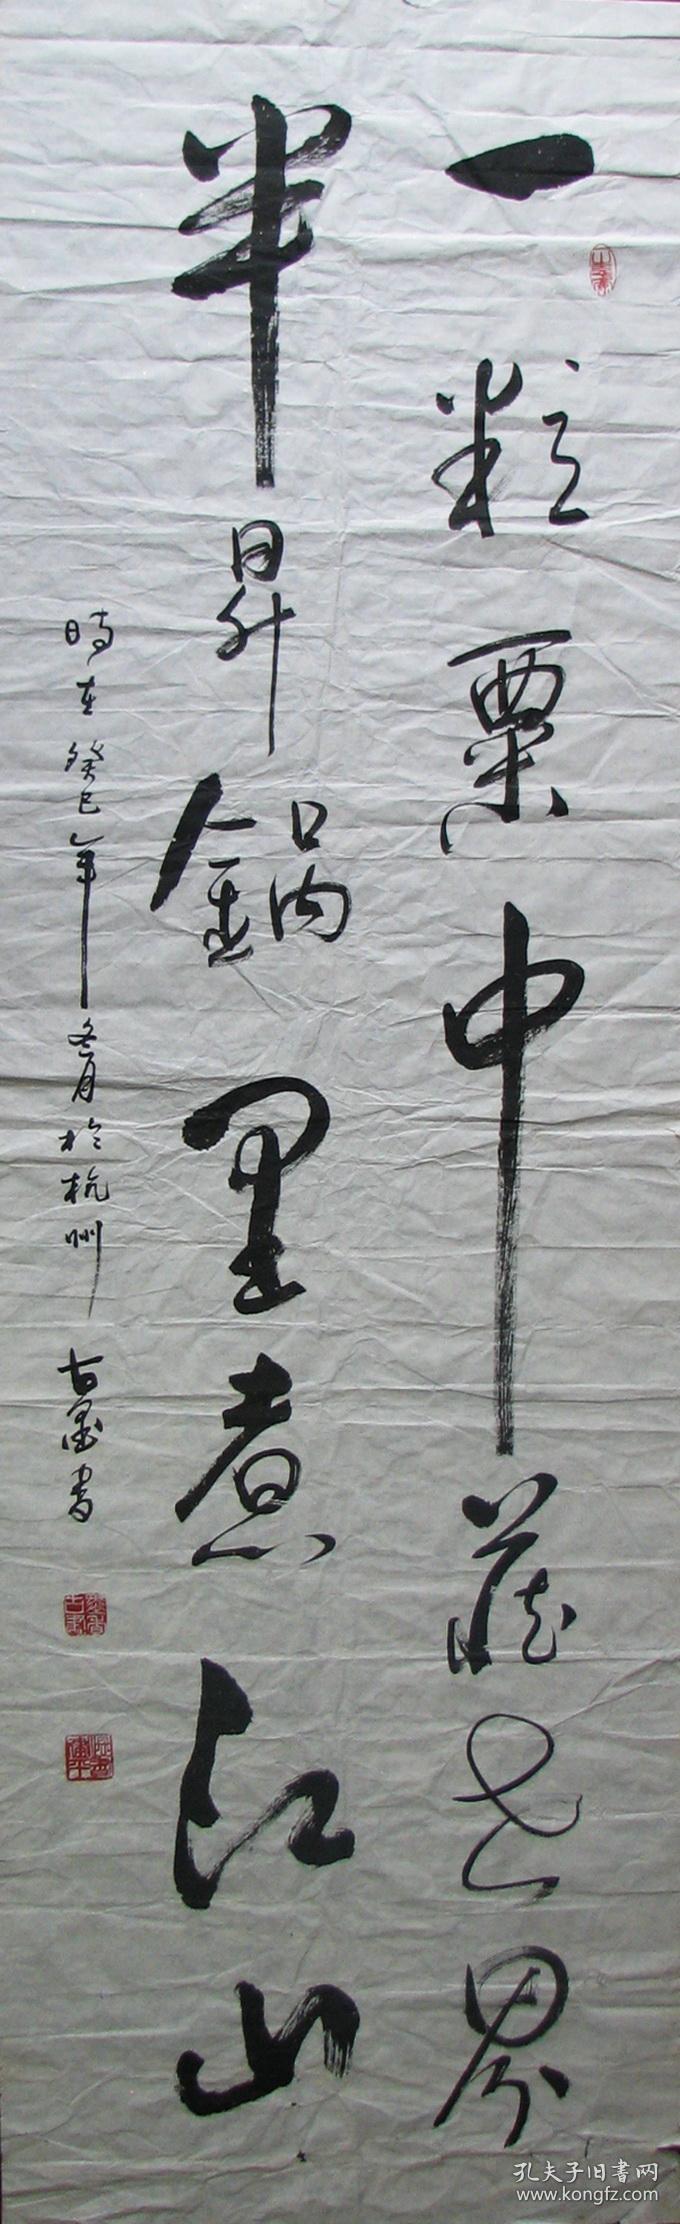 一粒粟中藏世界
半昇鍋里煮江山
時在癸巳年冬月於杭州 古墨書
孔夫子旧書网
www.kongfz.com